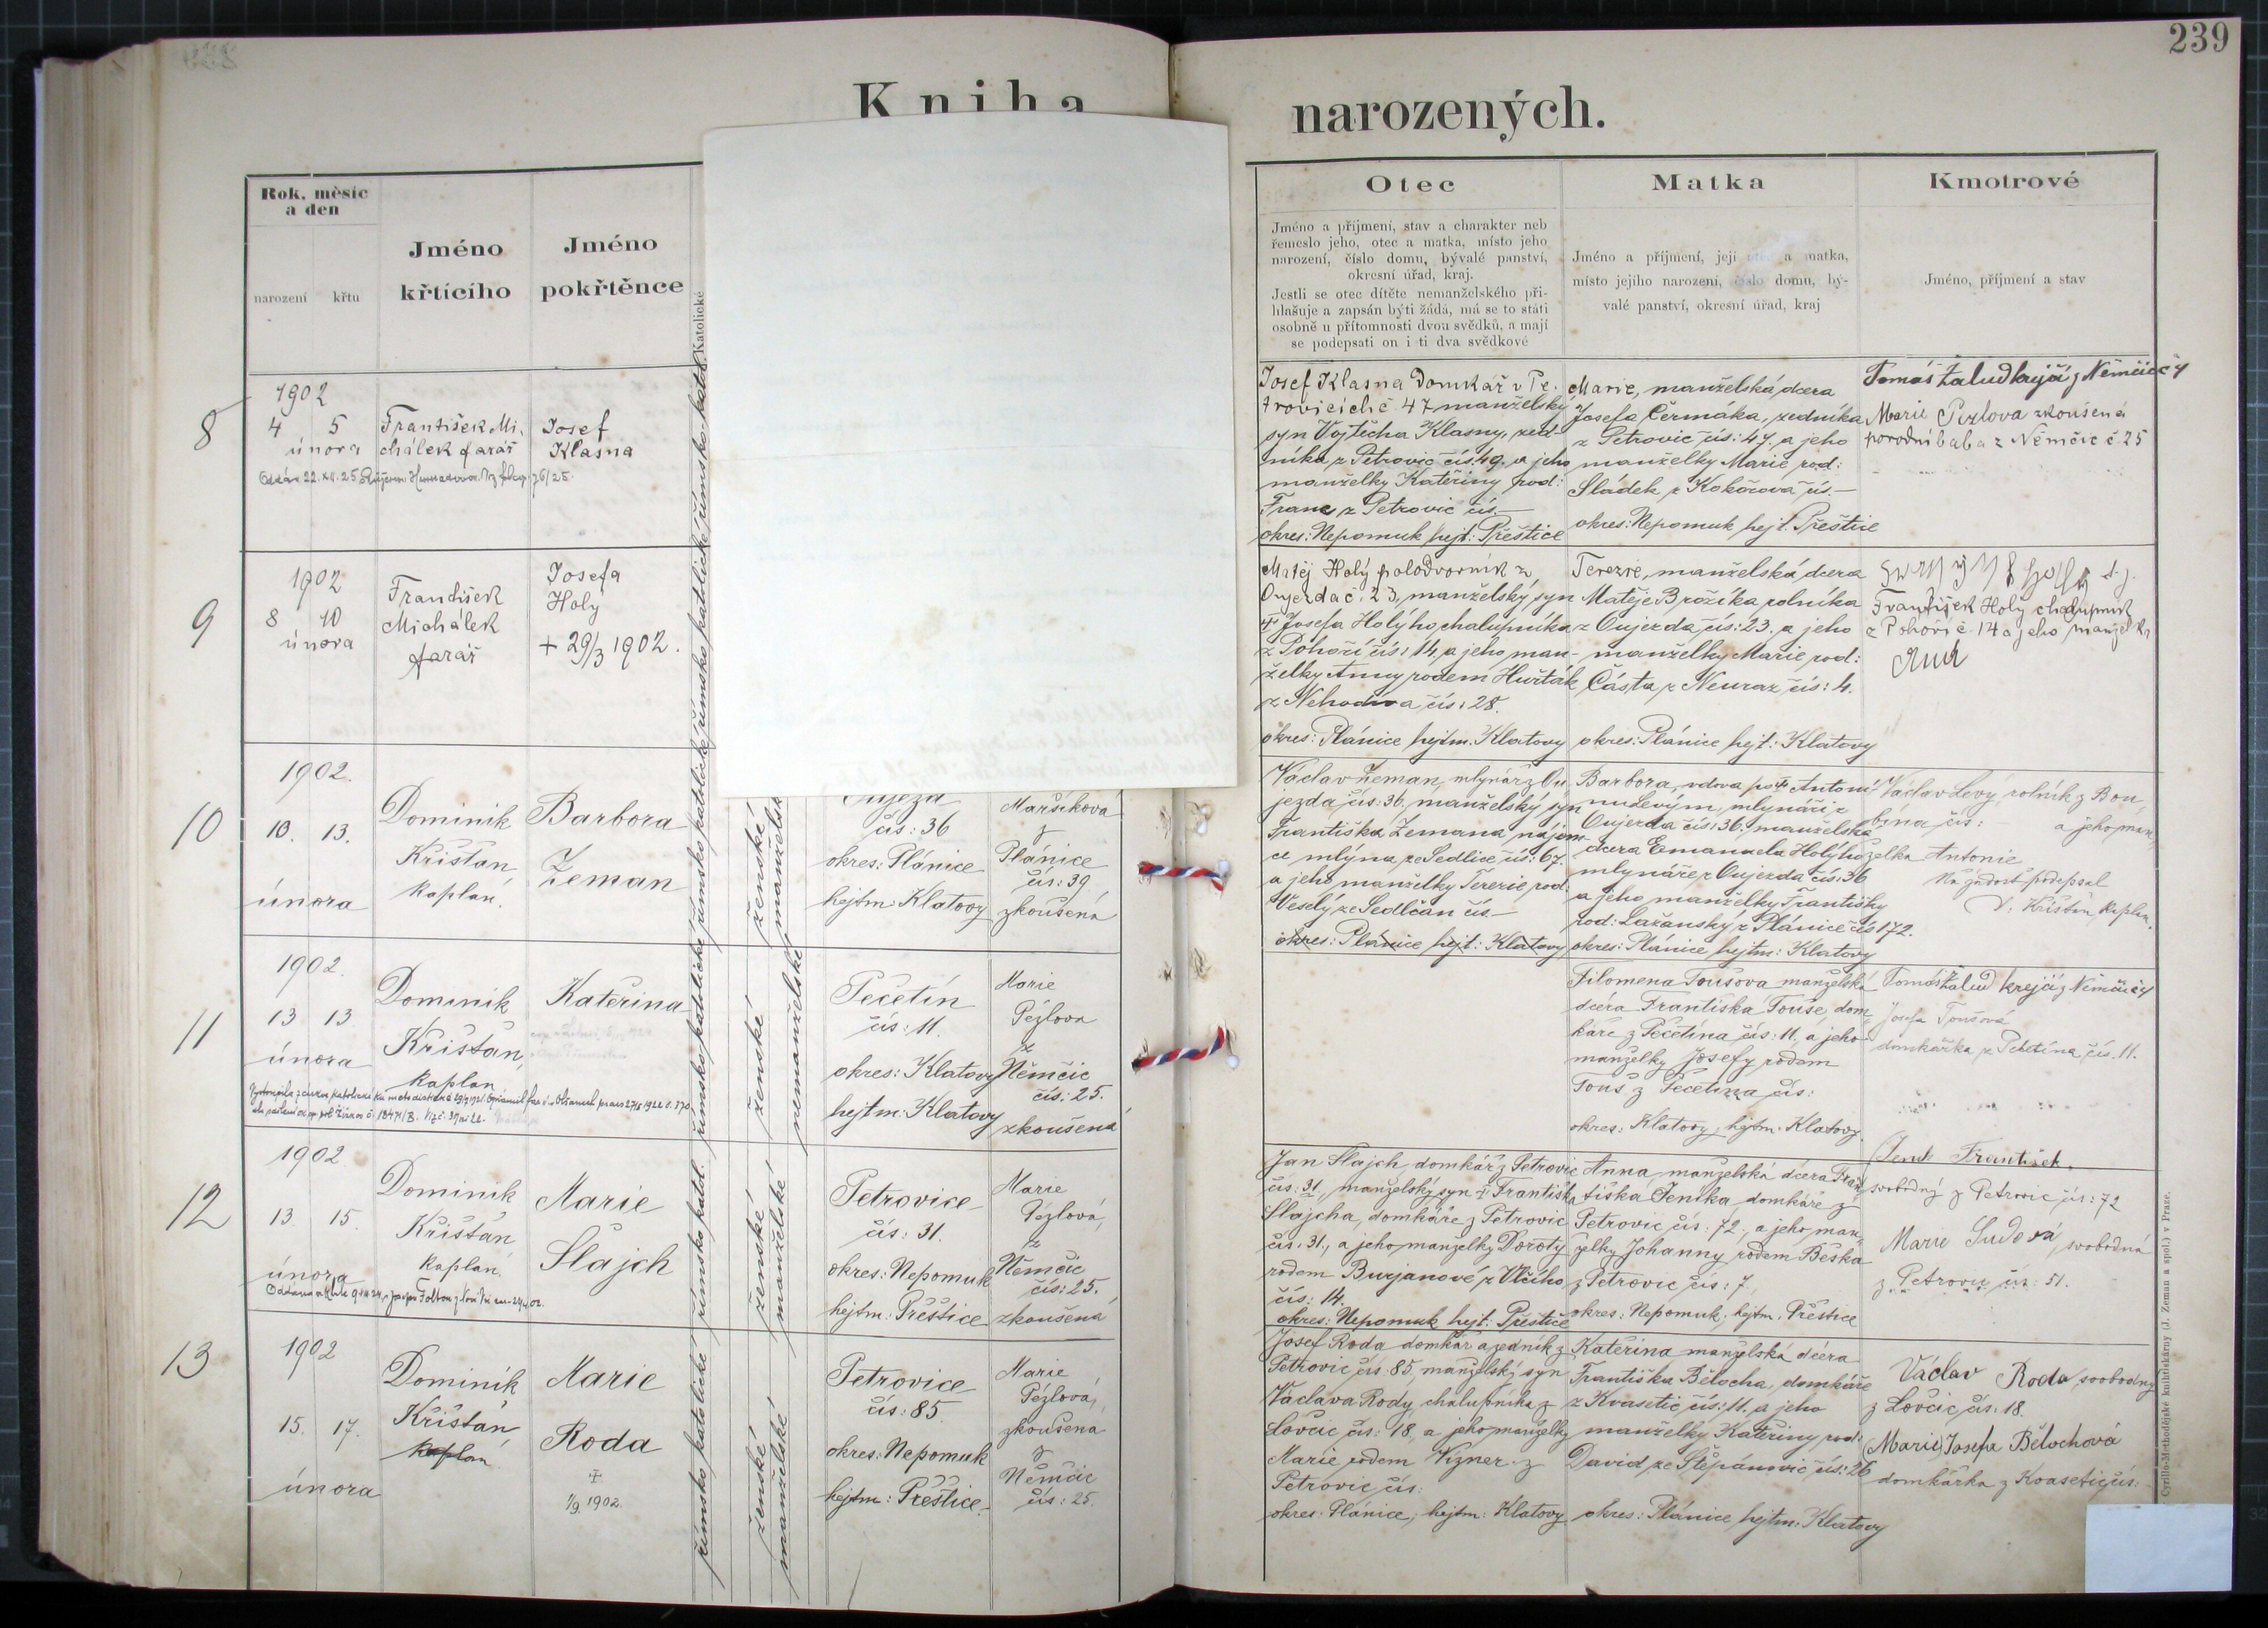 239
Kniha
narozených.
Rok, měsíc
a den
narození
křtu
Jméno
křtícího
Jméno
pokřtěnce
Katolické
Otec
Jméno a příjmení, stav a charakter neb
řemeslo jeho, otec a matka, místo jeho
narození, číslo domu, bývalé panství,
okresní úřad, kraj.
Jestli se otec dítěte nemanželského při-
hlašuje a zapsán býti žádá, má se to státi
osobně u přítomnosti dvou svědků, a mají
se podepsati on i ti dva svědkové
Matka
Jméno a příjmení, její otec a matka,
místo jejího narození, číslo domu, bý-
valé panství, okresní úřad, kraj
Kmotrové
Jméno, příjmení a stav
8
1902
4 5
února
František Mi-
chálek farář
Josef
Klasna
Josef Klasna Domkář v Pe-
trovicích č. 47 manželský
syn Vojtěcha Klasny, zed-
níka z Petrovic čís. 49. a jeho
manželky Kateřiny rod:
Franc z Petrovic čís.—
okres: Nepomuk hejt: Přeštice
Marie, manželská dcera
Josefa Čermáka, zedníka
z Petrovic čís: 47. a jeho
manželky Marie rod:
Sládek z Kokořova čís.—
okres: Nepomuk hejt. Přeštice
Tomáš Žalud krejčí z Němčic č 4
Marie Pézlova zkoušená
porodní baba z Němčic č. 25
9
1902
8 10
února
František
Michálek
farář
Josefa
Holy
+ 29/3 1902.
Matěj Holý polodvorník z
Oujezda č. 23, manželský syn
Josefa Holýho chalupníka
z Pohoří čís: 14, a jeho man-
želky Anny rodem Huřták
z Nehodiva čís: 28.
okres: Plánice hejtm. Klatovy
Terezie, manželská dcera
Matěje Brožíka rolníka
z Oujezda čís: 23. a jeho
manželky Marie rod:
Částa z Neuraz čís: 4.
okres: Plánice hejt: Klatovy
František Holy chalupník
z Pohoří č. 14 a jeho manželka
10
1902.
10. 13.
února
Dominik
Křištan
kaplan.
Barbora
Zeman
Oujezd
čís: 36
okres: Plánice
hejtm: Klatovy
Maršíková
z
Plánice
čís: 39
zkoušená
Václav Zeman, mlynář z Ou-
jezda čís: 36. manželský syn
Františka Zemana nájem-
ce mlýna ze Sedlice čís: 67.
a jeho manželky Terezie rod:
Veselý ze Sedlčan čís.—
okres: Plánice hejt: Klatovy
Barbora, vdova po Antoni-
mlynáři z
Oujezda čís: 36. manželská
dcera Emanuela Holýho
mlynáře z Oujezda čís: 36
a jeho manželky Františky
rod: Lažanský z Plánice čís 172.
okres: Plánice hejtm: Klatovy
Václav Levý, rolník z Bou-
bína čís: a jeho man-
želka Antonie
Na žádost podepsal
D. Křištan kaplan.
11
1902.
13 13
února
Dominik
Křištan,
kaplan
Kateřina
Pečetín
čís: 11.
okres: Klatovy
hejtm: Klatovy
Marie
Pézlova
z
Němčic
čís: 25.
zkoušená
Filomena Toušova manželská
dcera Františka Touše, dom-
káře z Pečetína čís: 11, a jeho
manželky Josefy rodem
Touš z Pečetína čís:
okres: Klatovy, hejtm: Klatovy.
Tomáš Žalud krejčí z Němčic č 4
Josefa Toušová
domkářka z Pečetína čís. 11.
12
1902
13. 15.
února
Dominik
Křištan
kaplan.
Marie
Šlajch
Petrovice
čís: 31.
okres: Nepomuk
hejtm: Přeštice
Marie
Pézlová,
z
Němčic
čís: 25.
zkoušená
Jan Šlajch, domkář z Petrovic
čís: 31., manželský syn Františka
Šlajcha, domkáře z Petrovic
čís: 31., a jeho manželky Doroty
rodem Burjanové z Vlčího
čís: 14.
okres: Nepomuk hejt: Přeštice
Anna manželská dcera Fran-
tiška Jeníka, domkáře z
Petrovic čís: 72., a jeho man-
želky Johanny rodem Beška
z Petrovic čís: 7.
okres: Nepomuk, hejtm. Přeštice
František,
svobodný z Petrovic čís: 72
Marie Sudová, svobodná
z Petrovic čís: 51.
13
1902
15. 17.
února
Dominik
Křištan,
kaplan
Marie
Roda
1/9. 1902.
Petrovice
čís: 85.
okres: Nepomuk
hejtm: Přeštice.
Marie
Pézlová,
zkoušená
z
Němčic
čís: 25.
Josef Roda domkář a zedník z
Petrovic čís: 85, manželský syn
Václava Rody, chalupníka z
Lovčic čís: 18, a jeho manželky
Marie rodem Vizner z
Petrovic čís:
okres: Plánice, hejtm: Klatovy
Kateřina manželská dcera
Františka Bělocha, domkáře
z Kvasetic čís: 11. a jeho
manželky Kateřiny rod:
David ze Štěpánovic čís: 26
okres: Plánice hejtm: Klatovy
Václav Roda svobodný
z Lovčic čís: 18.
(Marie) Josefa Bělochová
domkářka z Kvasetic čís:
římsko katolické
ženské
manželské
nemanželské
Cyrillo-Methodějské knihtiskárny (J. Zeman a spol.) v Praze.